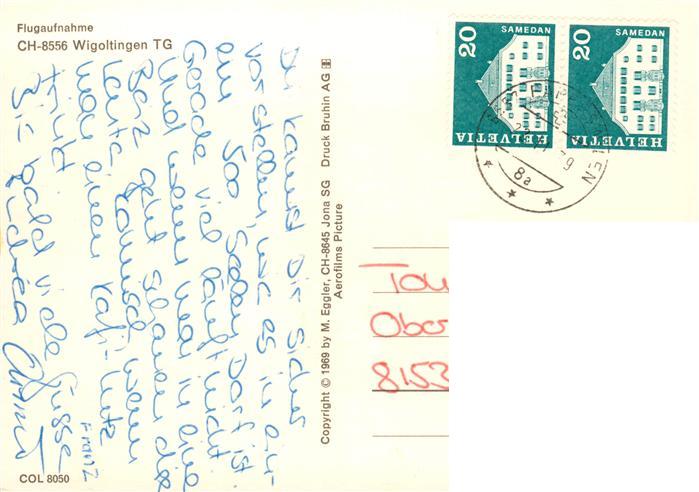 Flugaufnahme
CH-8556 Wigoltingen TG
Du kannst Dir sicher
vorstellen, wie es in ei-
em 500 Seelen Dorf ist.
Gerade viel läuft nicht.
Und wenn man in eine
Beiz geht schauen die
Leute komisch wenn
man einen Kafi-Lutz
trinkt.
Bis bald viele Grüsse
Copyright © 1969 by M. Eggler, CH-8645 Jona SG Druck Bruhin AG
Aerofilms Picture
COL 8050
20
SAMEDAN
HELVETIA
20
SAMEDAN
HELVETIA
8a
Tou
Ober
8153